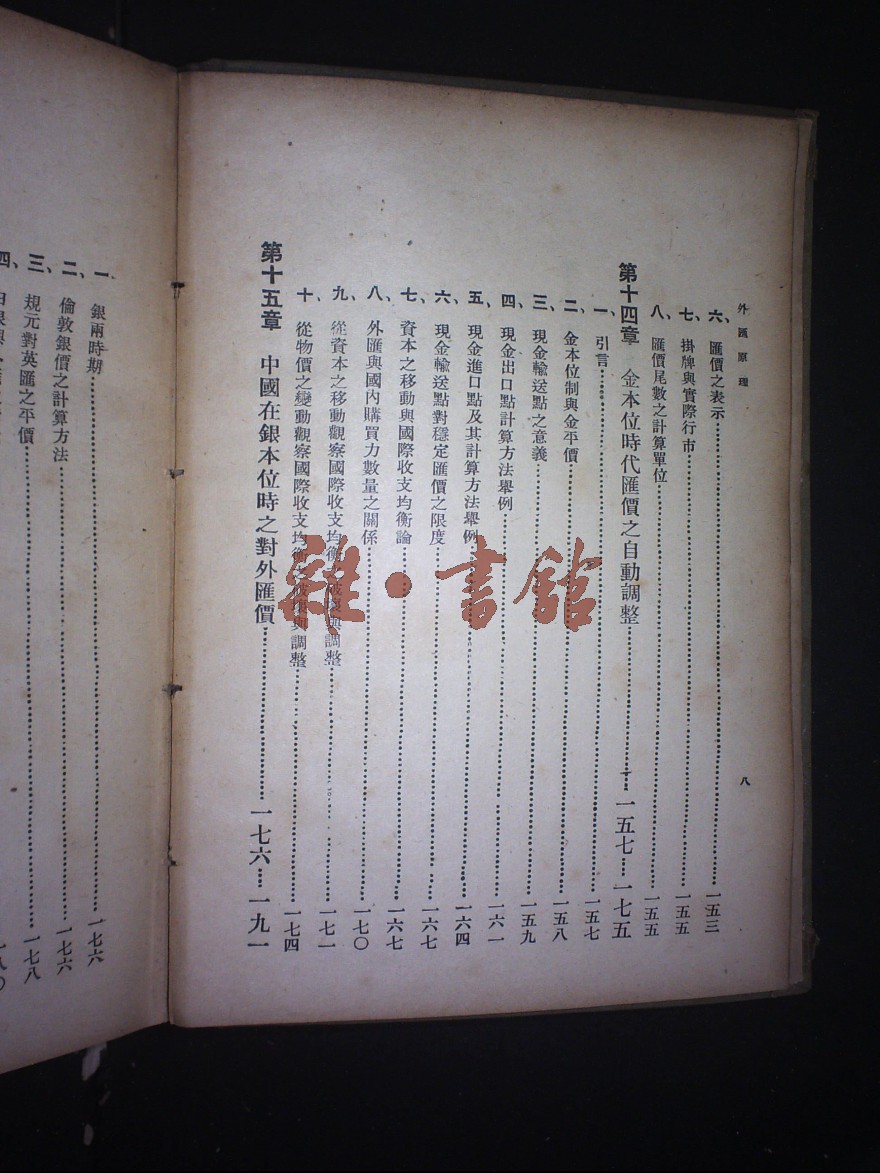 外匯原理
八
六、匯價之表示……一五三
七、掛牌與實際行市……一五五
八、匯價尾數之計算單位……一五五
第十四章 金本位時代匯價之自動調整……一五七…一七五
一、引言……一五七
二、金本位制與金平價……一五八
三、現金輸送點之意義……一五九
四、現金出口點計算方法舉例……一六一
五、現金進口點及其計算方法舉例……一六四
六、現金輸送點對穩定匯價之限度……一六七
七、資本之移動與國際收支均衡論……一六七
八、外匯與國內購買力數量之關係……一七〇
九、從資本之移動觀察國際收支均衡之破壞與調整……一七一
十、從物價之變動觀察國際收支均衡之破壞與調整……一七四
第十五章 中國在銀本位時之對外匯價……一七六…一九一
一、銀兩時期……一七六
二、倫敦銀價之計算方法……一七六
三、規元對英匯之平價……一七八
四、
一八〇
雜·書館